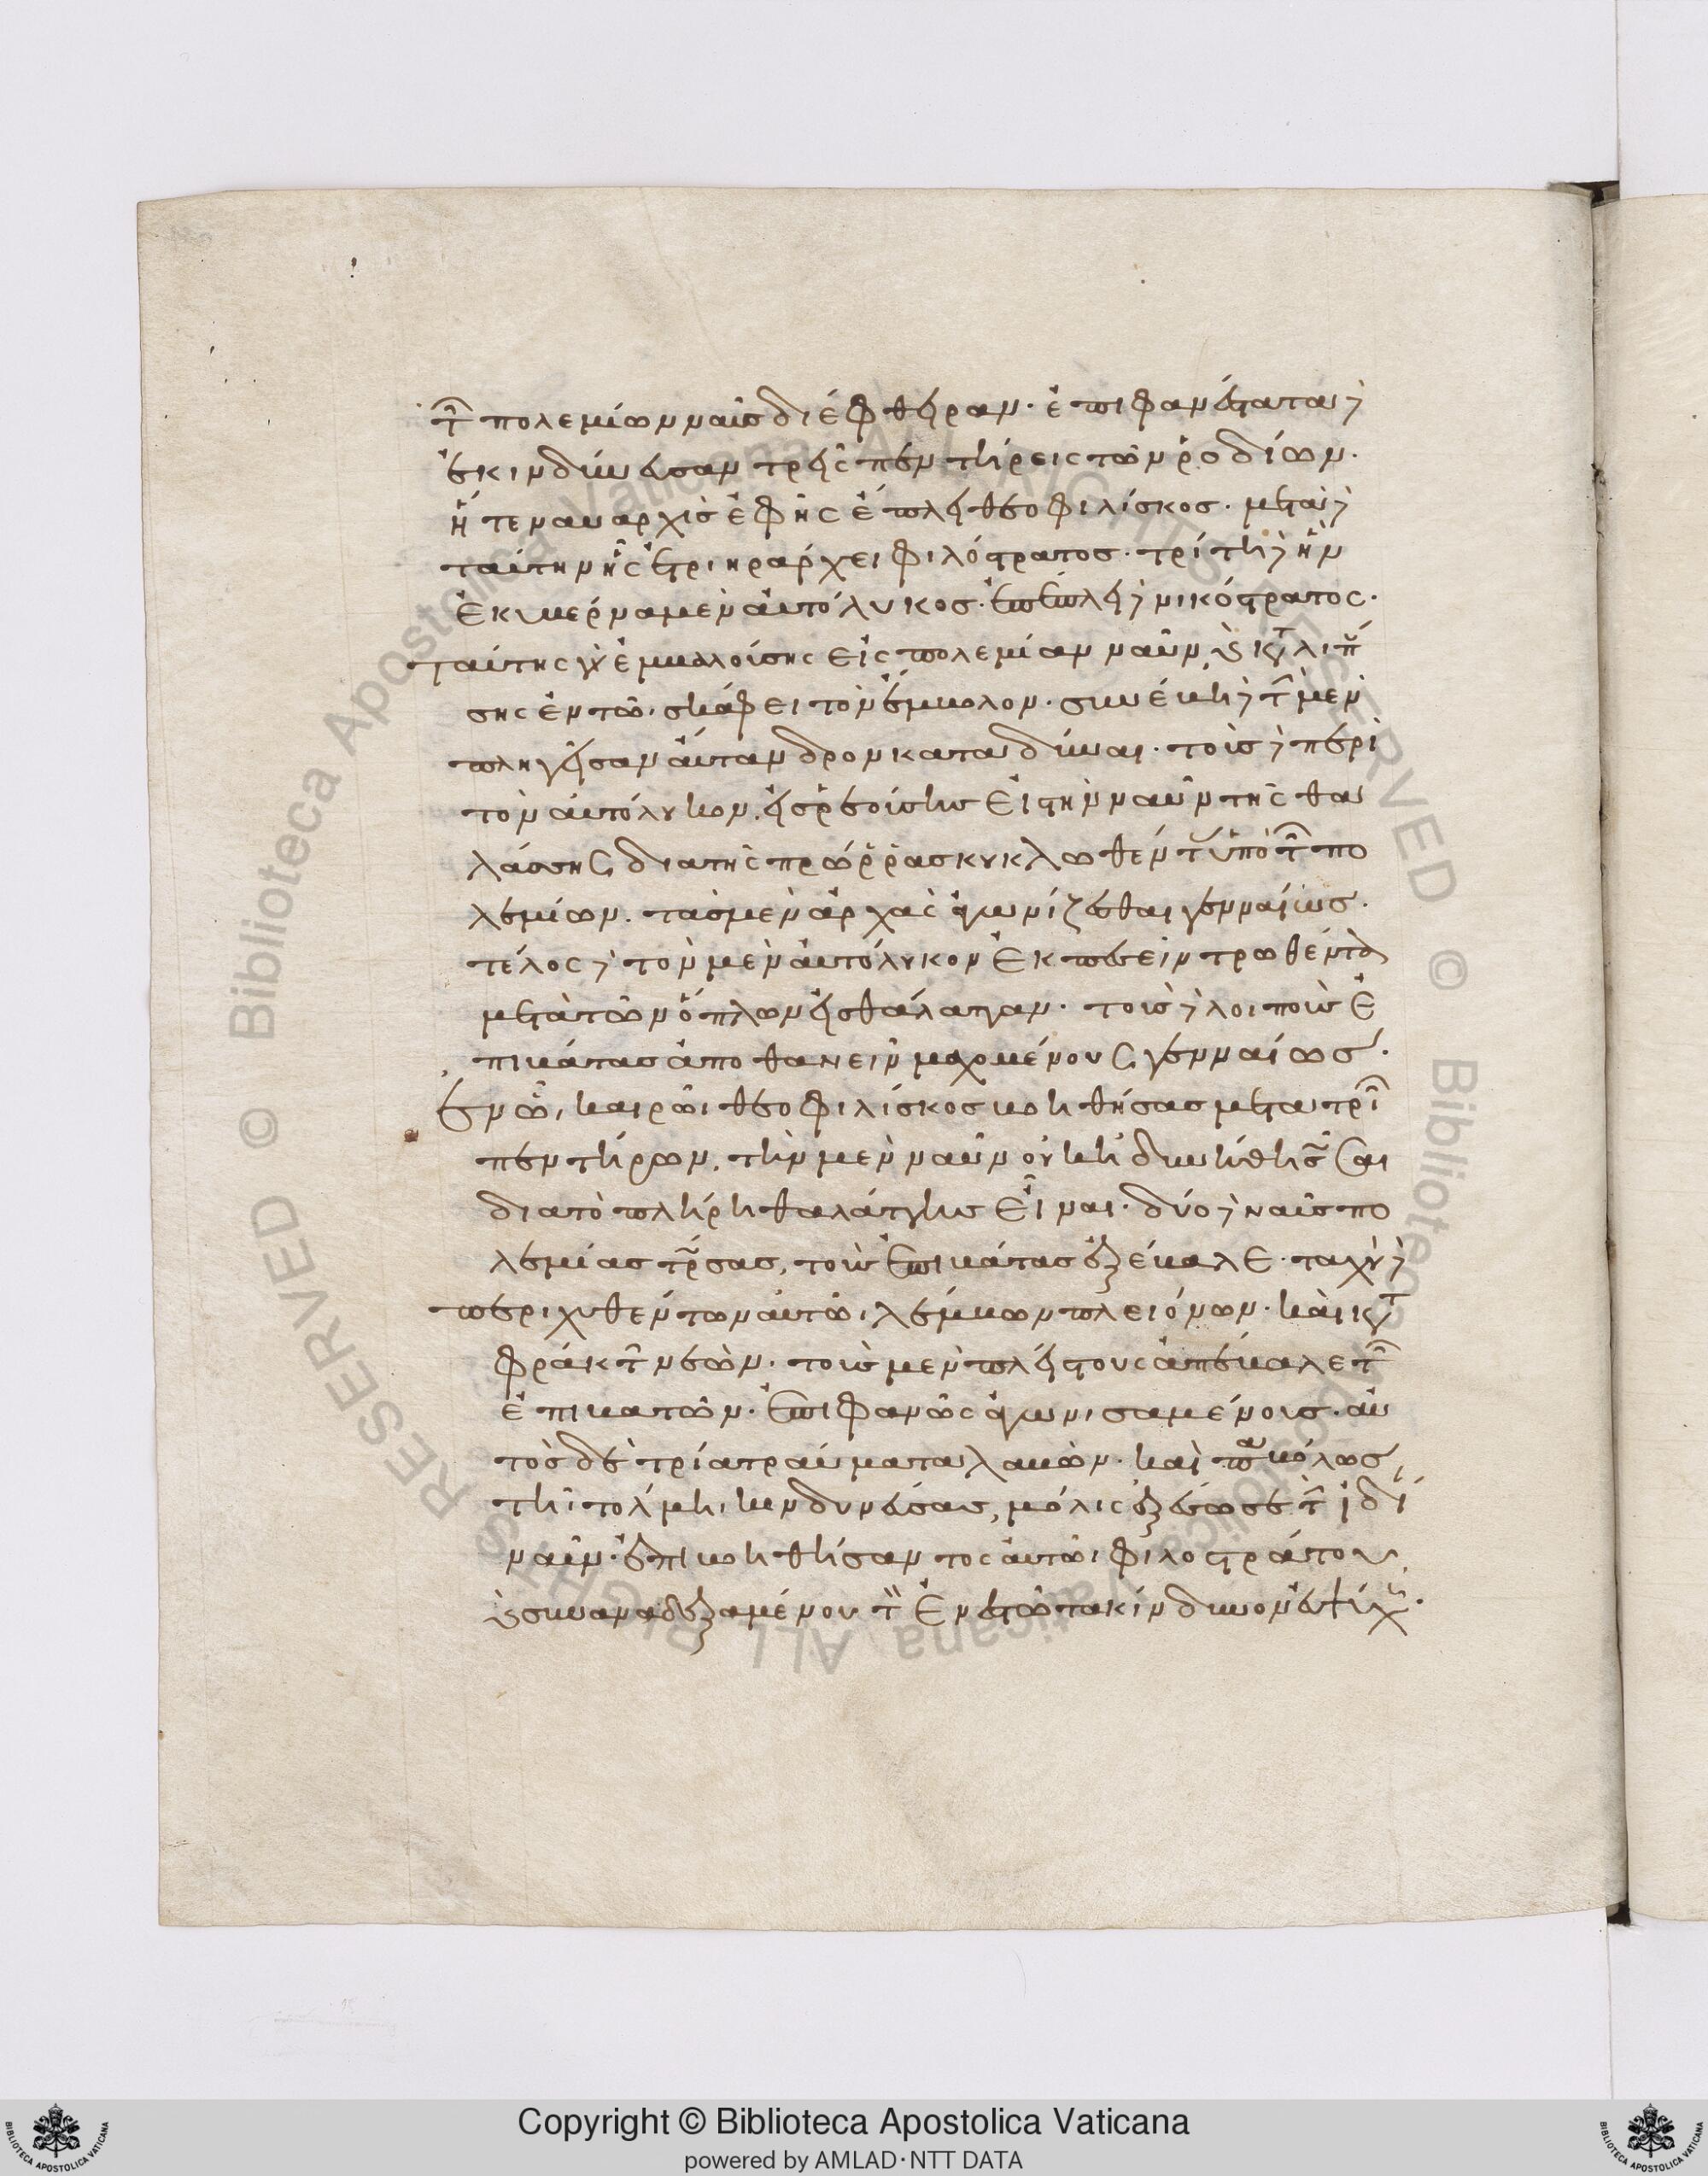 τῶν πολεμίων ναῦς διέφθειραν· ἐπιφανέστατα δὲ
ἐκινδύνευσαν τρεῖς πεντήρεις τῶν ῥοδίων·
ἥ τε ναυαρχὶς ἐφ ἧς ἔπλει θεοφιλίσκος· μετὰ δὲ
ταύτην ἧς ἐτριηράρχει φιλόστρατος· τρίτη δὲ ἣν
ἐκυβέρνα μὲν αὐτόλυκος· ἐπέπλει δὲ νικόστρατος·
ταύτης γὰρ ἐμβαλούσης εἰς πολεμίαν ναῦν, καὶ καταλιπού
σης ἐν τῶι σκάφει τὸν ἔμβολον· συνέβη δὲ τὴν μὲν
πληγεῖσαν αὔτανδρον καταδῦναι· τοὺς δὲ περὶ
τὸν αὐτόλυκον, εἰσρεούσης εἰς τὴν ναῦν τῆς θα
λάσσης διὰ τῆς πρώρρας κυκλωθέντας ὑπὸ τῶν πο
λεμίων· τὰς μὲν ἀρχὰς ἀγωνίζεσθαι γενναίως·
τέλος δὲ τὸν μὲν αὐτόλυκον ἐκπεσεῖν τρωθέντα
μετὰ τῶν ὅπλων εἰς θάλατταν· τοὺς δὲ λοιποὺς ἐ
πιβάτας ἀποθανεῖν μαχομένους γενναίως·
ἐν ὧι καιρῶι θεοφιλίσκος βοηθήσας μετὰ τριῶν
πεντήρων, τὴν μὲν ναῦν οὐκ ἠδυνήθη σῶσαι
διὰ τὸ πλήρη θαλάττης εἶναι· δύο δὲ ναῦς πο
λεμίας τρώσας, τοὺς ἐπιβάτας ἐξέβαλε· ταχὺ δὲ
περιχυθέντων αὐτῶι λέμβων πλειόνων· καὶ κατα
φράκτων νεῶν· τοὺς μὲν πλείστους ἀπέβαλε τῶν
ἐπιβατῶν· ἐπιφανῶς ἀγωνισαμένους· αὐ
τὸς δὲ τρία τραύματα λαβὼν· καὶ παραβόλως
τῆι τόλμηι κινδυνεύσας, μόλις ἐξέσωσε τὴν ἰδίαν
ναῦν· ἐπιβοηθήσαντος αὐτῶι φιλοστράτου,
καὶ συναναδεξαμένου τὸν ἐνεστῶτα κίνδυνον εὐψύχως·
Copyright © Biblioteca Apostolica Vaticana
powered by AMLAD·NTT DATA